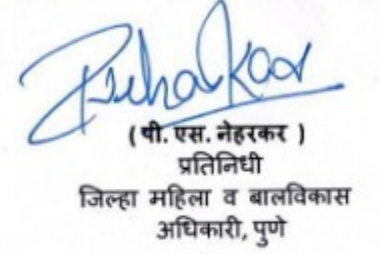 (पी. एस. नेहरकर )
प्रतिनिधी
जिल्हा महिला व बालविकास
अधिकारी, पुणे